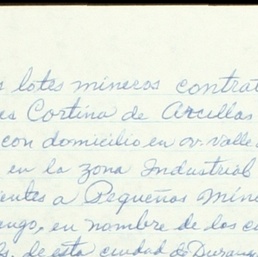 s lotes mineros contrat
es Cortina de Arcillas
con domicilio en av. valle
en la zona Industrial
ientes a Pequeños Mine
ango, en nombre de los co
de esta ciudad de Durang